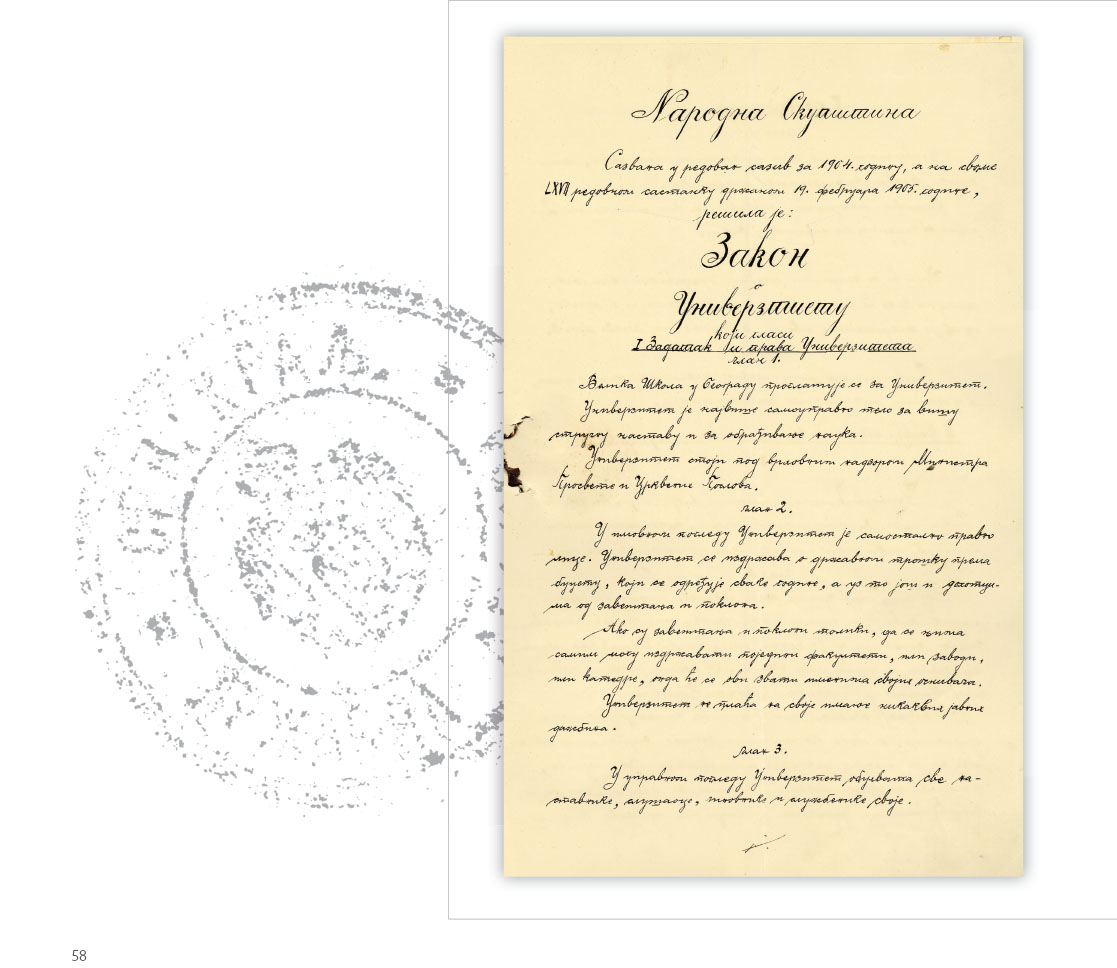 Народна Скупштина
Сазвана у редован сазив за 1904. годину, а на своме
LXVII редовном састанку држаном 19. фебруара 1905. године,
решила је:
Закон
о
Универзитету
који гласи
I Задатак и права Универзитета
члан 1.
Велика Школа у Београду проглашује се за Универзитет.
Универзитет је највише самоуправно тело за вишу
стручну наставу и за обрађивање наука.
Универзитет стоји под врховним надзором Министра
Просвете и Црквених Послова.
члан 2.
У имовном погледу Универзитет је самостално правно
лице. Универзитет се издржава о државном трошку према
буџету, који се одређује сваке године, а уз то још и дохотци-
ма од завештања и поклона.
Ако су завештања и поклони толики, да се њима
самим могу издржавати поједини факултети, или заводи,
или катедре, онда ће се они звати именима својих оснивача.
Универзитет не плаћа на своје имање никаквих јавних
дажбина.
члан 3.
У управном погледу Универзитет обухвата све на-
ставнике, слушаоце, чиновнике и службенике своје.
58